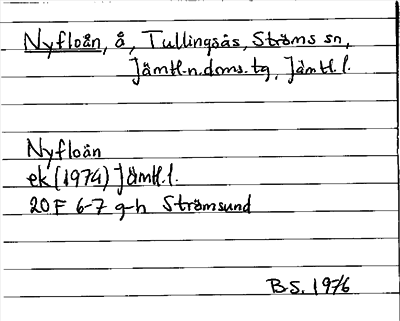 Nyfloån, å, Tullingsås, Ströms sn,
Jämtl.n.doms.tg, Jämtl.l.
Nyfloån
ek (1974) Jämtl.l.
20F 6-7 g-h Strömsund
B.S. 1976